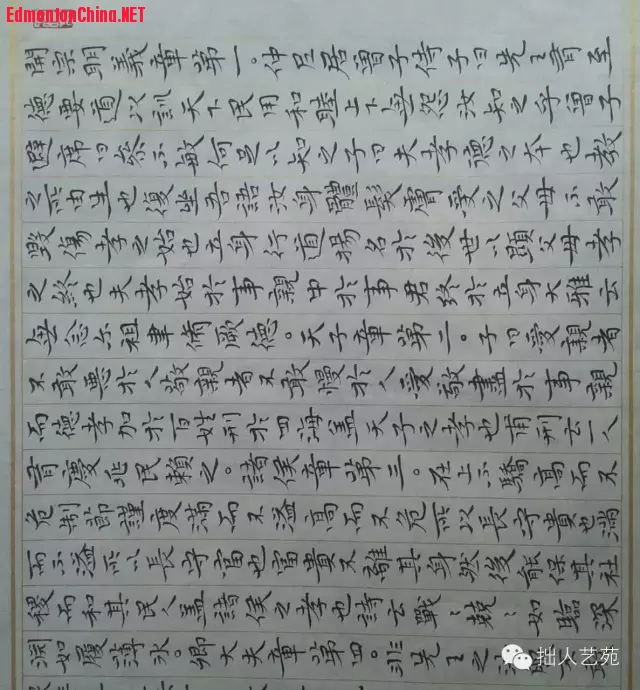 EdmontonChina.NET
開宗明義章第一。仲尼居曾子侍子曰先王有至
德要道以訓天下民用和睦上下無怨汝知之乎曾子
避席曰參不敏何足以知之子曰夫孝德之本也教
之所由生也復坐吾語汝身體髮膚受之父母不敢
毀傷孝之始也立身行道揚名於後世以顯父母孝
之終也夫孝始於事親中於事君終於立身大雅云
無念尔祖聿脩厥德。天子章第二。子曰愛親者
不敢惡於人敬親者不敢慢於人愛敬盡於事親
而德孝加於百姓刑於四海蓋天子之孝也甫刑云一人
有慶兆民賴之。諸侯章第三。在上不驕高而不
危制節謹度滿而不溢高而不危所以長守貴也滿
而不溢所以長守富也富貴不離其身然後能保其社
稷而和其民人蓋諸侯之孝也詩云戰〻兢〻如臨深
淵如履薄冰。卿大夫章第四。非先王之
拙人艺苑